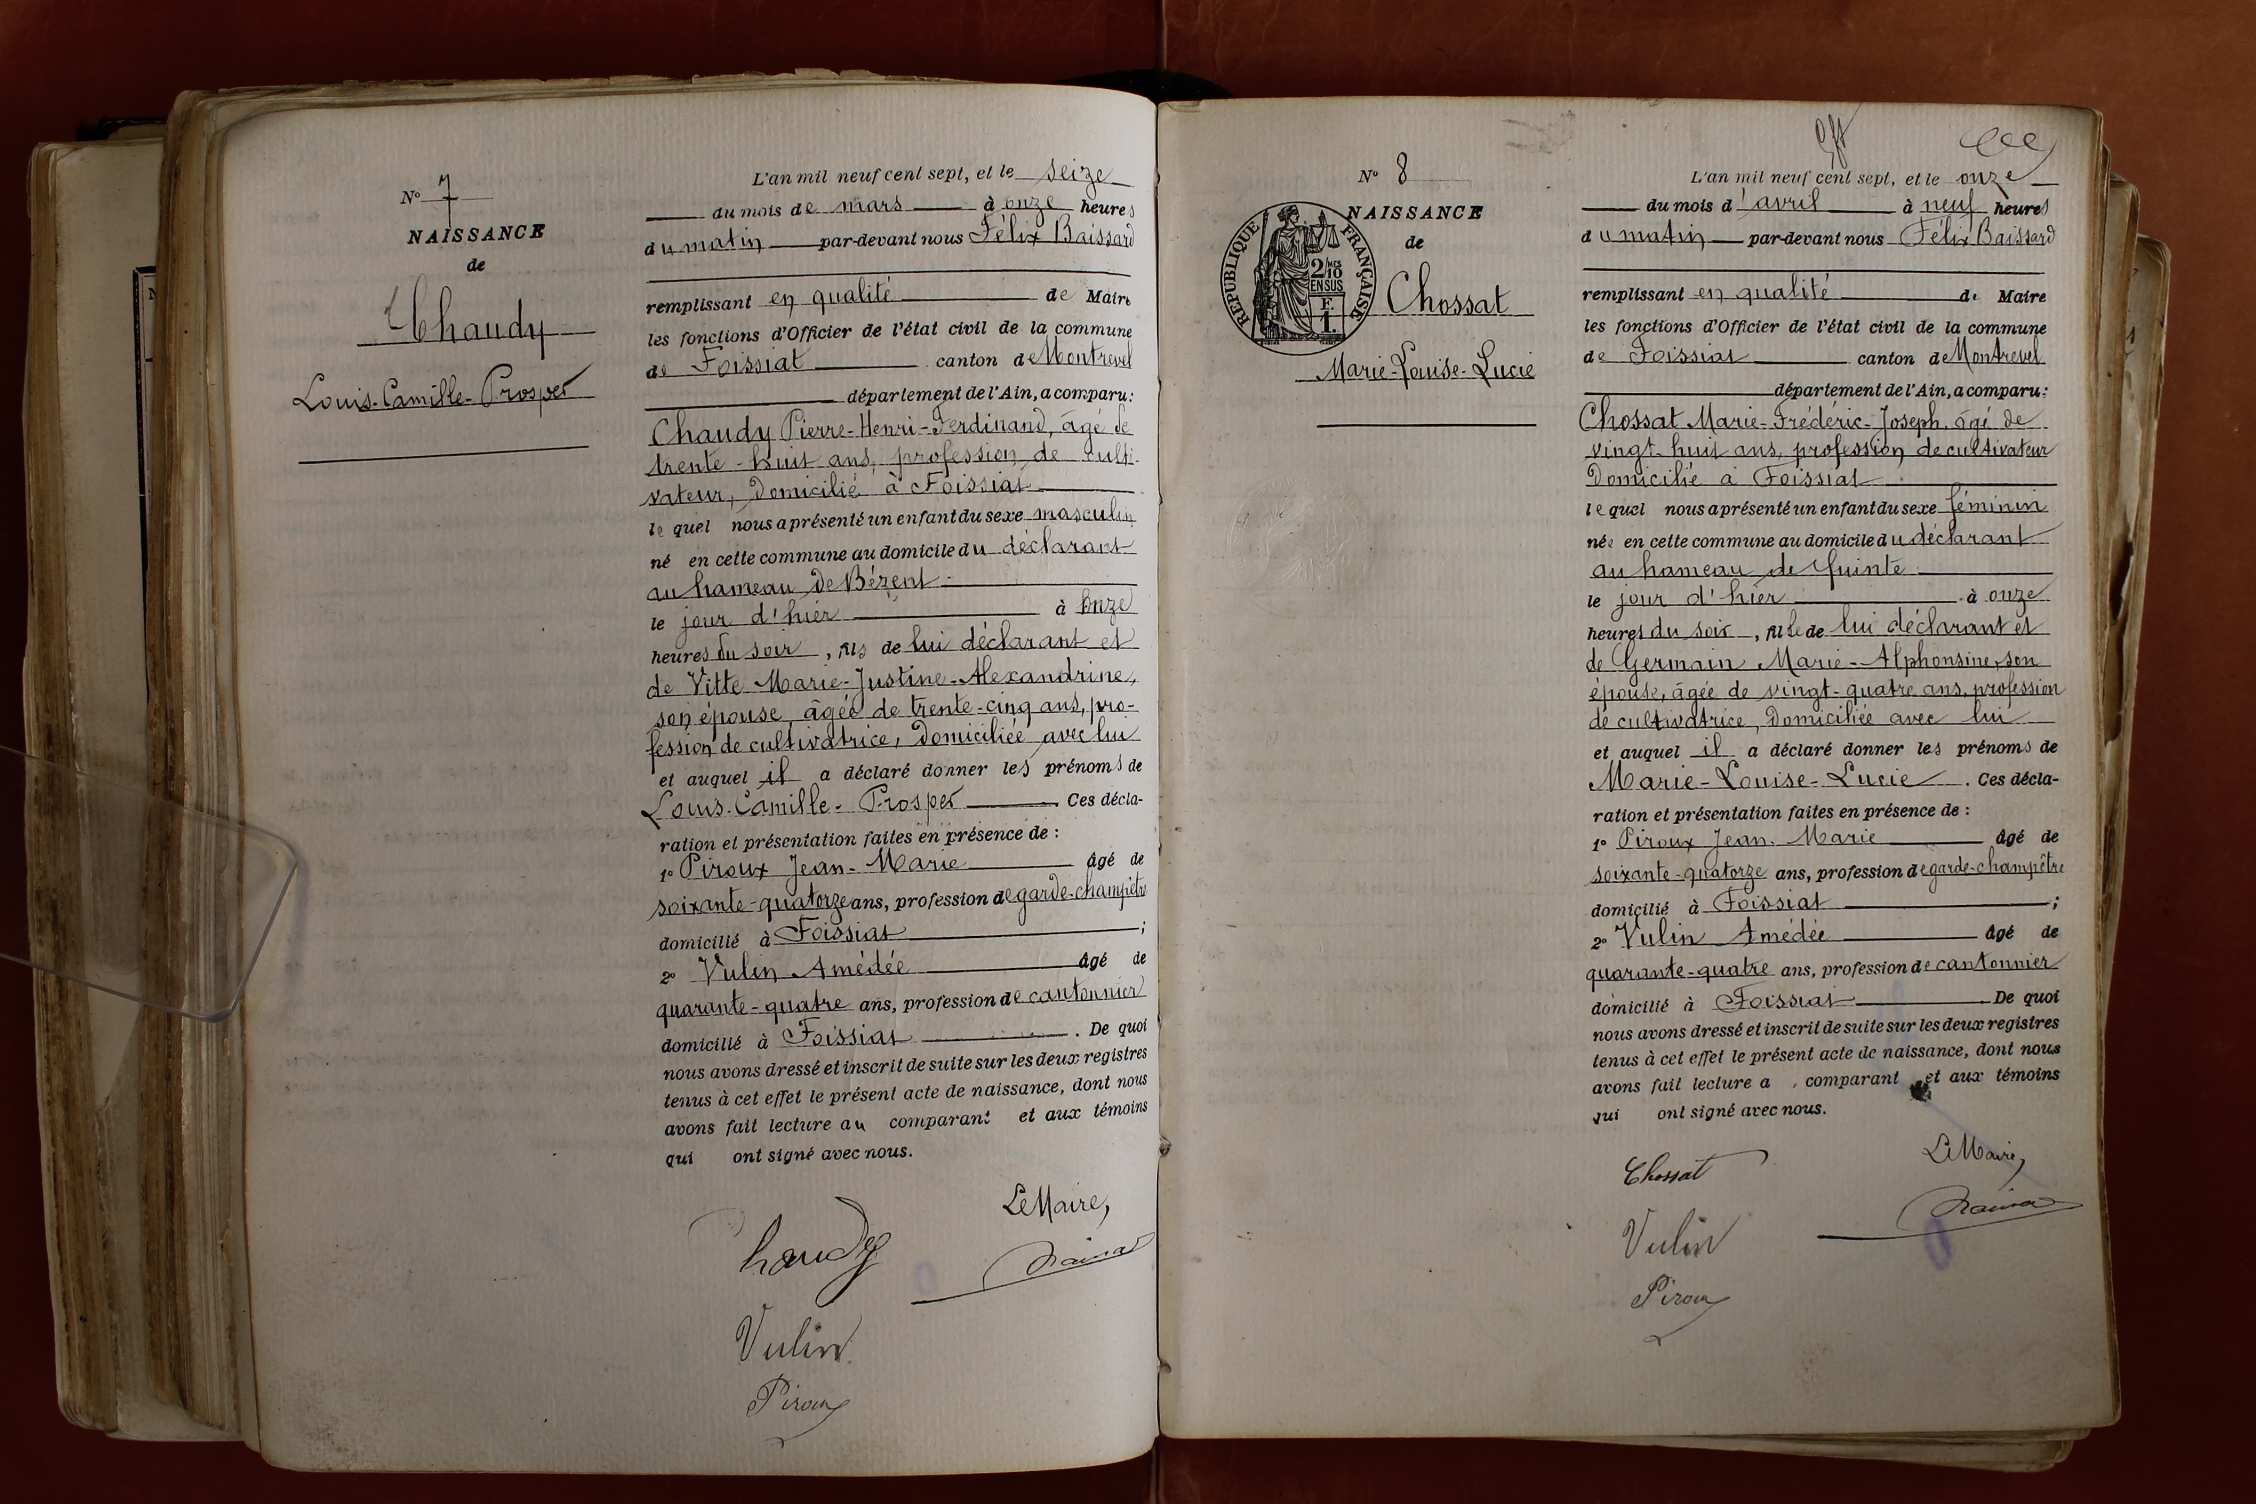 N° 7
NAISSANCE
de
Chaudy
Louis-Camille-Prosper
L'an mil neuf cent sept, et le seize
du mois de mars à onze heures
du matin par-devant nous Félix Baissard
remplissant en qualité de Maire
les fonctions d'Officier de l'état civil de la commune
de Foissiat canton de Montrevel
département de l'Ain, a comparu:
Chaudy Pierre-Henri-Ferdinand, âgé de
trente-huit ans, profession de culti-
vateur, domicilié à Foissiat
le quel nous a présenté un enfant du sexe masculin
né en cette commune au domicile du déclarant
au hameau de Bézent
le jour d'hier à onze
heures du soir, fils de lui déclarant et
de Vitte Marie-Justine-Alexandrine,
son épouse, âgée de trente-cinq ans, pro-
fession de cultivatrice, domiciliée avec lui
et auquel il a déclaré donner les prénoms de
Louis-Camille-Prosper Ces décla-
ration et présentation faites en présence de :
1° Piroux Jean-Marie âgé de
soixante-quatorze ans, profession de garde-champêtre
domicilié à Foissiat ;
2° Vulin Amédée âgé de
quarante-quatre ans, profession de cantonnier
domicilié à Foissiat . De quoi
nous avons dressé et inscrit de suite sur les deux registres
tenus à cet effet le présent acte de naissance, dont nous
avons fait lecture au comparant et aux témoins
qui ont signé avec nous.
Le Maire,
Chaudy
Vulin
Piroux
N° 8
NAISSANCE
de
RÉPUBLIQUE FRANÇAISE
2/10 MES
EN SUS
F.
1.
Chossat
Marie-Louise-Lucie
L'an mil neuf cent sept, et le onze
du mois d'avril à neuf heures
du matin par-devant nous Félix Baissard
remplissant en qualité de Maire
les fonctions d'Officier de l'état civil de la commune
de Foissiat canton de Montrevel
département de l'Ain, a comparu:
Chossat Marie-Frédéric-Joseph, âgé de
vingt-huit ans, profession de cultivateur
domicilié à Foissiat
le quel nous a présenté un enfant du sexe féminin
née en cette commune au domicile du déclarant
au hameau de Quinte
le jour d'hier à onze
heures du soir, fille de lui déclarant et
de Germain Marie-Alphonsine, son
épouse, âgée de vingt-quatre ans, profession
de cultivatrice, domiciliée avec lui
et auquel il a déclaré donner les prénoms de
Marie-Louise-Lucie . Ces décla-
ration et présentation faites en présence de :
1° Piroux Jean-Marie âgé de
soixante-quatorze ans, profession de garde-champêtre
domicilié à Foissiat ;
2° Vulin Amédée âgé de
quarante-quatre ans, profession de cantonnier
domicilié à Foissiat De quoi
nous avons dressé et inscrit de suite sur les deux registres
tenus à cet effet le présent acte de naissance, dont nous
avons fait lecture a comparant et aux témoins
qui ont signé avec nous.
Le Maire,
Chossat
Vulin
Piroux